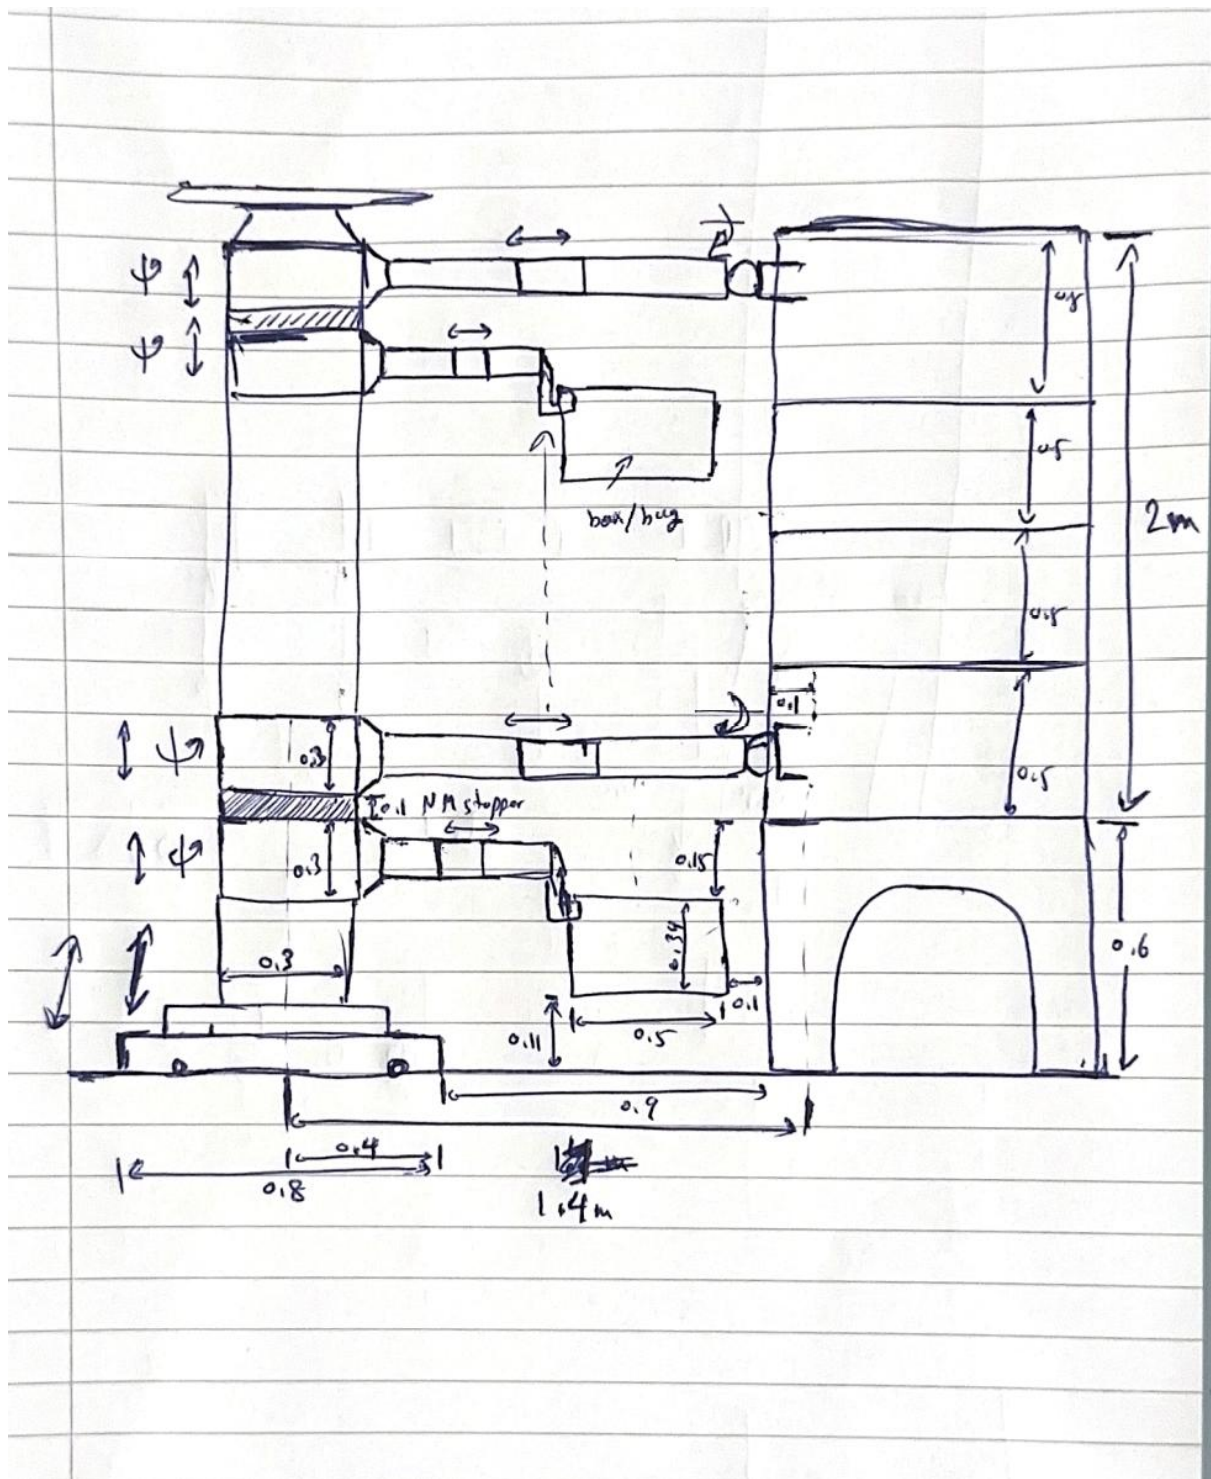 ψ
ψ
0.5
0.5
box/bag
2m
0.5
0.1
ψ
0.3
0.5
0.1 NM stopper
ψ
0.3
0.15
0.34
0.6
0.3
0.1
0.11
0.5
0.9
0.4
0.8
1.4m